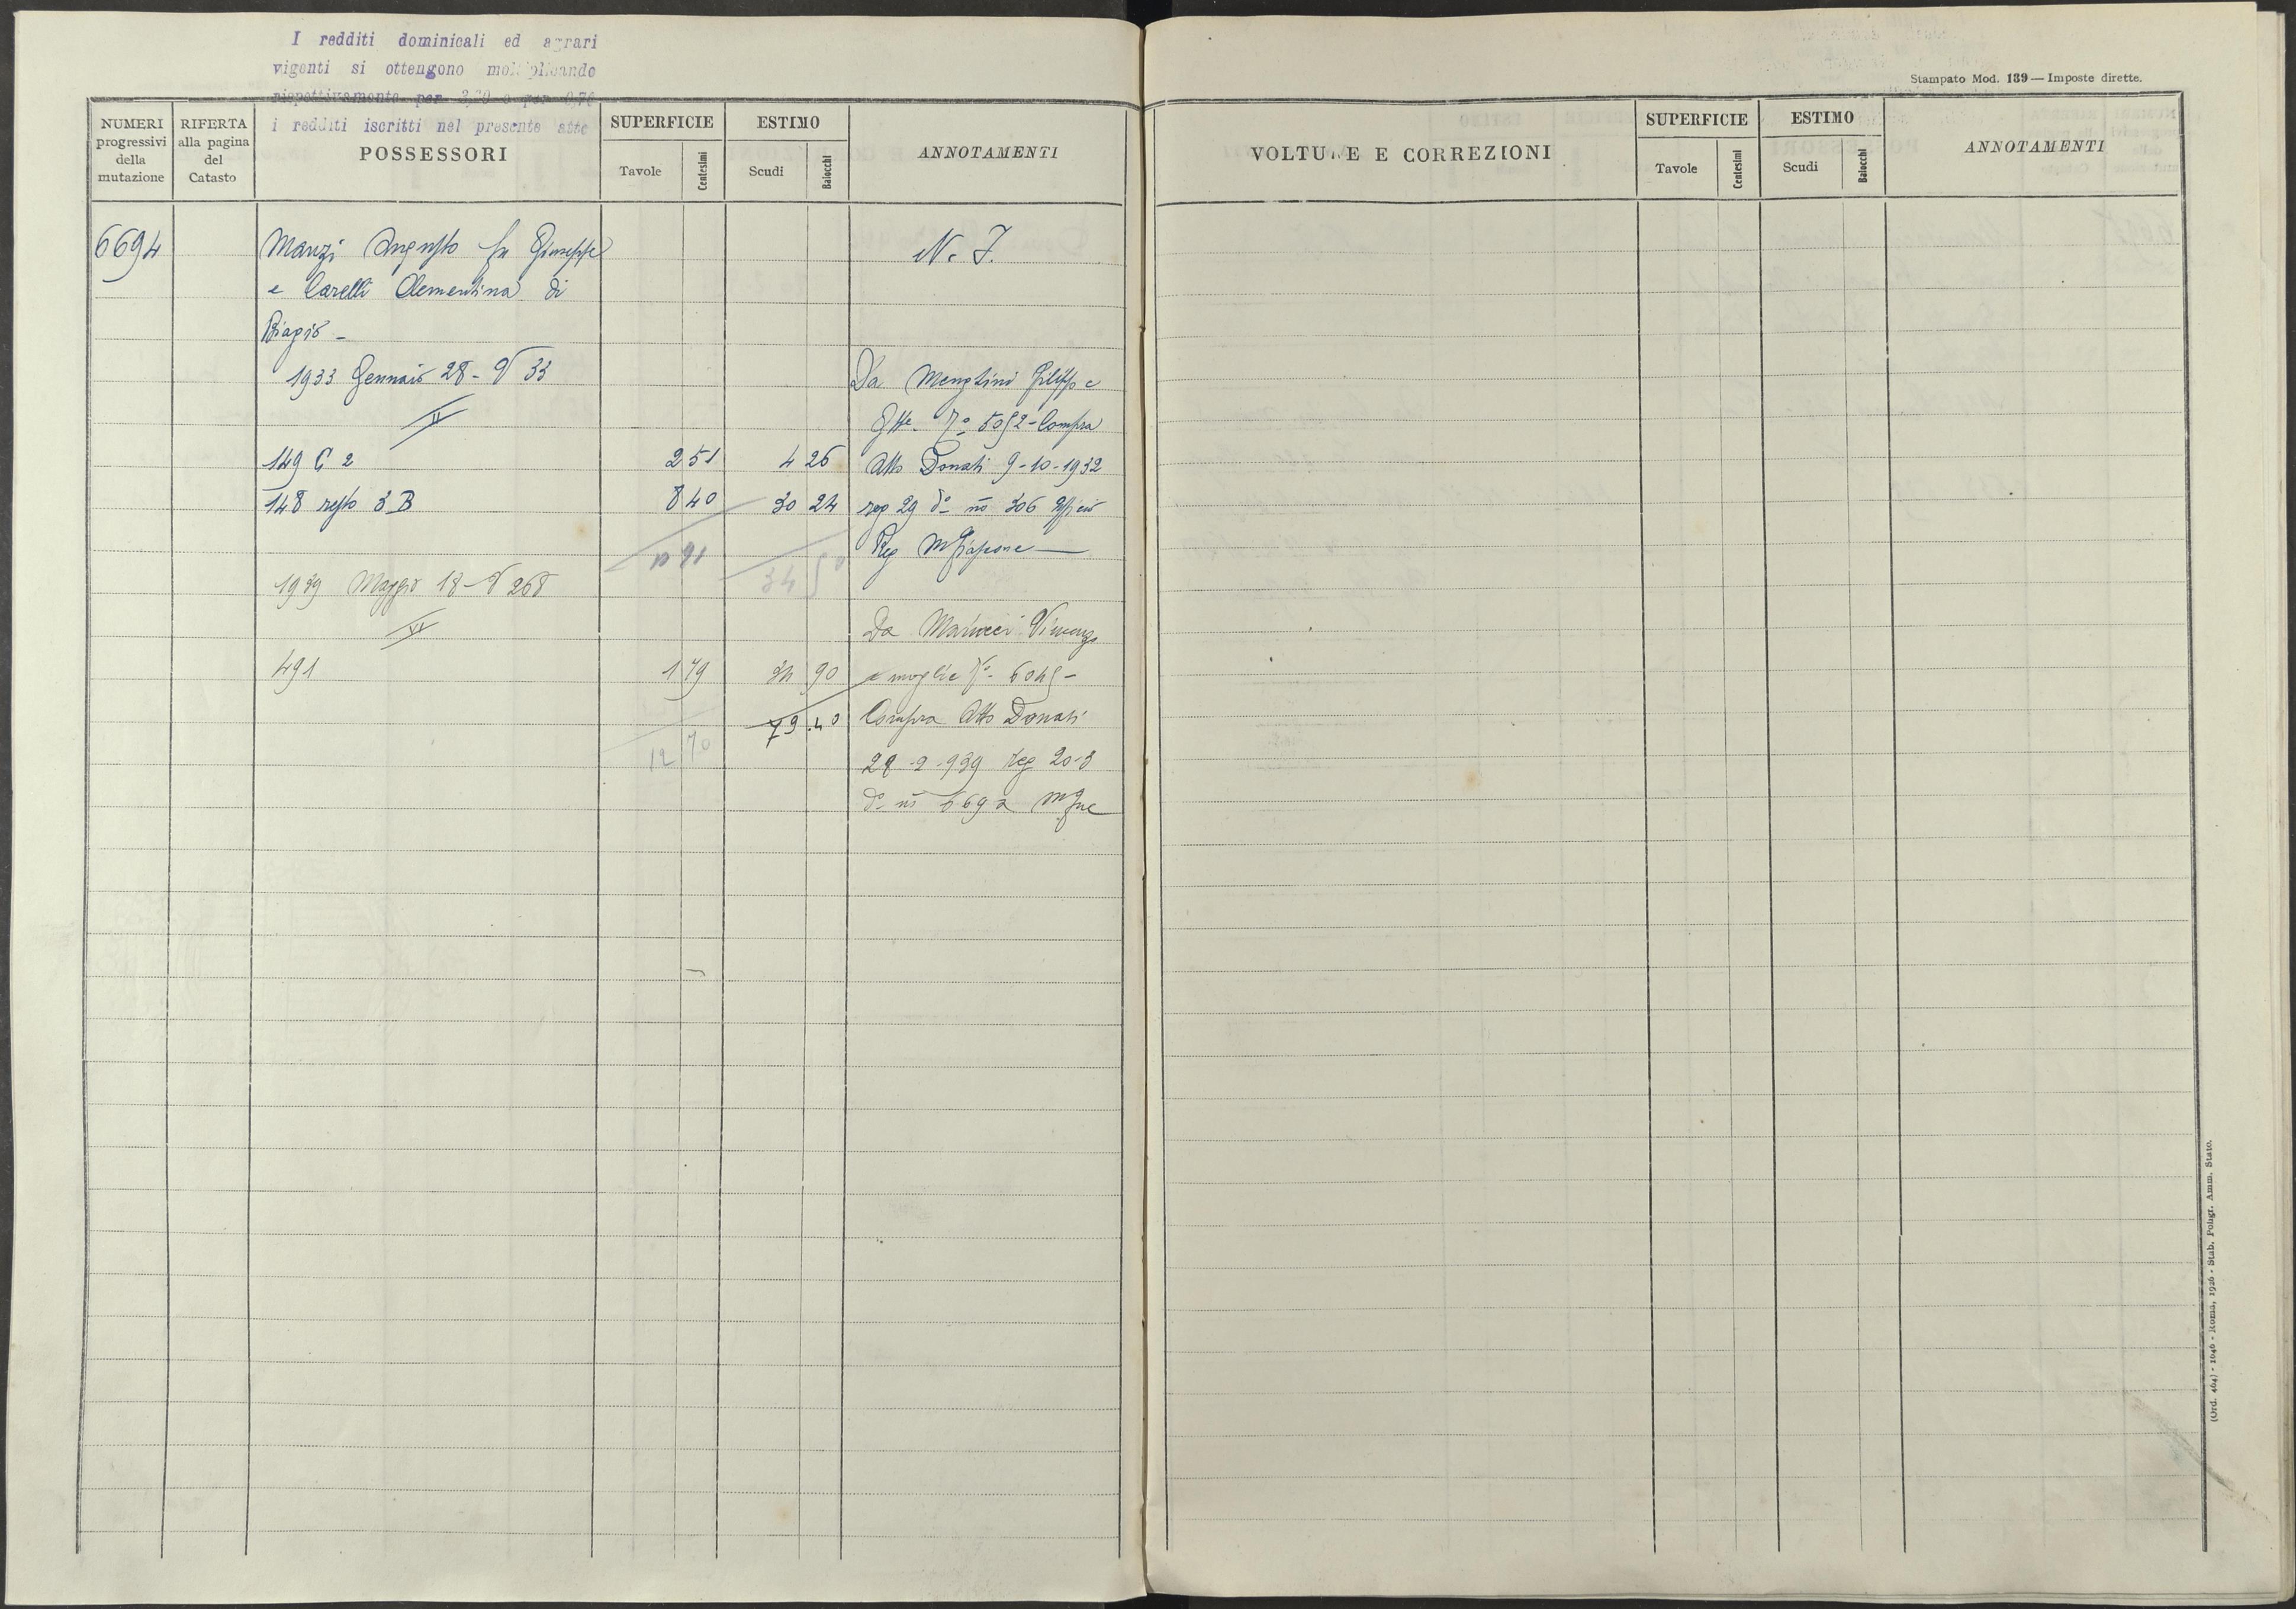 I redditi dominicali ed agrari
vigenti si ottengono moltiplicando
rispettivamente per 3,20 e per 0,76
i redditi iscritti nel presente atto
Stampato Mod. 139 — Imposte dirette.
NUMERI progressivi della mutazione
RIFERTA alla pagina del Catasto
POSSESSORI
SUPERFICIE
Tavole Centesimi
ESTIMO
Scudi Baiocchi
ANNOTAMENTI
VOLTURE E CORREZIONI
SUPERFICIE
Tavole Centesimi
ESTIMO
Scudi Baiocchi
ANNOTAMENTI
6694 Manzi Augusto fu Giuseppe N. I.
e Carelli Clementina di
Biagio -
1933 Gennaio 28 - V 33 Da Filippo e
Compra
149 C 2 2 51 4 26 Atto Donati 9-10-1932
148 resto 3 B 8 40 30 24 reg 29 do no 306
10 91 34 50 Reg
1939 Maggio 18 - V 268
VI Da Vincenzo
491 1 79 90 e moglie
12 70 79.40 Compra Atto Donati
2-939 reg 20-3
do no
(Ord. 464) - 1646 - Roma, 1926 - Stab. Poligr. Amm. Stato.